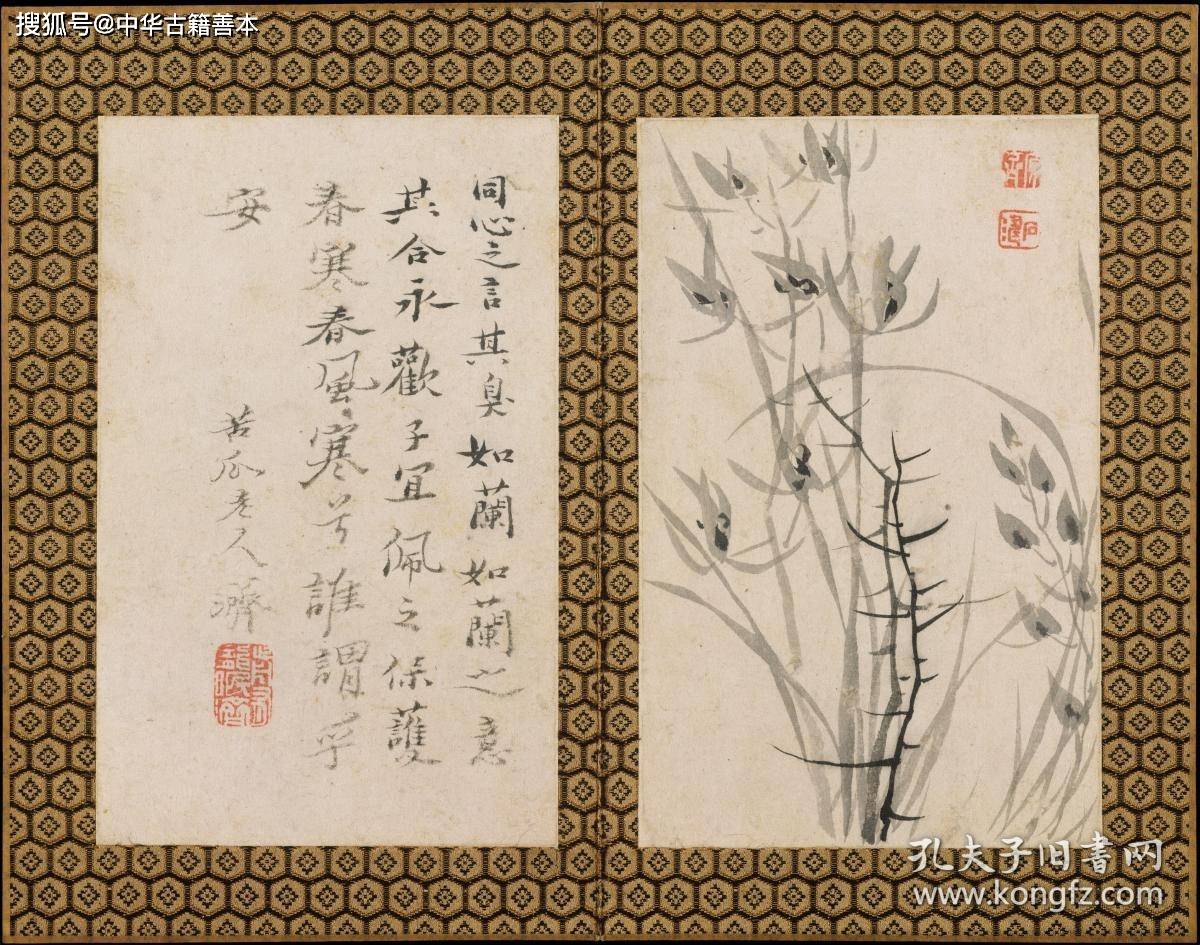 搜狐号@中华古籍善本
同心之言其臭如蘭如蘭之意
其合永歡子宜佩之保護
春寒春風寒兮誰謂乎
安
苦瓜老人濟
孔夫子旧书网
www.kongfz.com